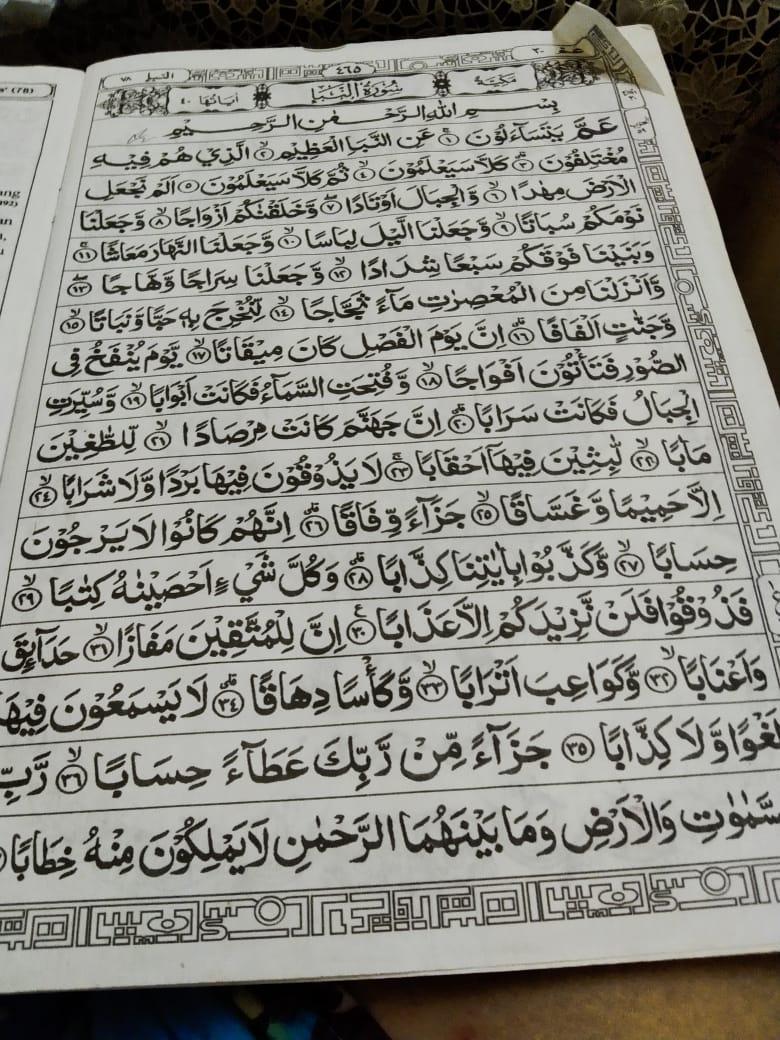 عم ٣٠ ٤٦٥ النبا ٧٨
سُورَةُ النَّبَإِ مَكِّيَّةٌ اٰيَاتُهَا ٤٠
بِسْمِ اللّٰهِ الرَّحْمٰنِ الرَّحِيْمِ
عَمَّ يَتَسَآءَلُوْنَ ۝١ عَنِ النَّبَاِ الْعَظِيْمِ ۝٢ الَّذِيْ هُمْ فِيْهِ
مُخْتَلِفُوْنَ ۝٣ كَلَّا سَيَعْلَمُوْنَ ۝٤ ثُمَّ كَلَّا سَيَعْلَمُوْنَ ۝٥ اَلَمْ نَجْعَلِ
الْاَرْضَ مِهٰدًا ۝٦ وَّالْجِبَالَ اَوْتَادًا ۝٧ وَّخَلَقْنٰكُمْ اَزْوَاجًا ۝٨ وَّجَعَلْنَا
نَوْمَكُمْ سُبَاتًا ۝٩ وَّجَعَلْنَا الَّيْلَ لِبَاسًا ۝١٠ وَّجَعَلْنَا النَّهَارَ مَعَاشًا ۝١١
وَبَنَيْنَا فَوْقَكُمْ سَبْعًا شِدَادًا ۝١٢ وَّجَعَلْنَا سِرَاجًا وَّهَّاجًا ۝١٣
وَّاَنْزَلْنَا مِنَ الْمُعْصِرٰتِ مَآءً ثَجَّاجًا ۝١٤ لِّنُخْرِجَ بِهٖ حَبًّا وَّنَبَاتًا ۝١٥
وَّجَنّٰتٍ اَلْفَافًا ۝١٦ اِنَّ يَوْمَ الْفَصْلِ كَانَ مِيْقَاتًا ۝١٧ يَّوْمَ يُنْفَخُ فِى
الصُّوْرِ فَتَأْتُوْنَ اَفْوَاجًا ۝١٨ وَّفُتِحَتِ السَّمَآءُ فَكَانَتْ اَبْوَابًا ۝١٩ وَّسُيِّرَتِ
الْجِبَالُ فَكَانَتْ سَرَابًا ۝٢٠ اِنَّ جَهَنَّمَ كَانَتْ مِرْصَادًا ۝٢١ لِّلطّٰغِيْنَ
مَاٰبًا ۝٢٢ لّٰبِثِيْنَ فِيْهَآ اَحْقَابًا ۝٢٣ لَا يَذُوْقُوْنَ فِيْهَا بَرْدًا وَّلَا شَرَابًا ۝٢٤
اِلَّا حَمِيْمًا وَّغَسَّاقًا ۝٢٥ جَزَآءً وِّفَاقًا ۝٢٦ اِنَّهُمْ كَانُوْا لَا يَرْجُوْنَ
حِسَابًا ۝٢٧ وَّكَذَّبُوْا بِاٰيٰتِنَا كِذَّابًا ۝٢٨ وَكُلَّ شَيْءٍ اَحْصَيْنٰهُ كِتٰبًا ۝٢٩
فَذُوْقُوْا فَلَنْ نَّزِيْدَكُمْ اِلَّا عَذَابًا ۝٣٠ اِنَّ لِلْمُتَّقِيْنَ مَفَازًا ۝٣١ حَدَآئِقَ
وَاَعْنَابًا ۝٣٢ وَّكَوَاعِبَ اَتْرَابًا ۝٣٣ وَّكَأْسًا دِهَاقًا ۝٣٤ لَا يَسْمَعُوْنَ فِيْهَا
لَغْوًا وَّلَا كِذّٰبًا ۝٣٥ جَزَآءً مِّنْ رَّبِّكَ عَطَآءً حِسَابًا ۝٣٦ رَّبِّ
السَّمٰوٰتِ وَالْاَرْضِ وَمَا بَيْنَهُمَا الرَّحْمٰنِ لَا يَمْلِكُوْنَ مِنْهُ خِطَابًا